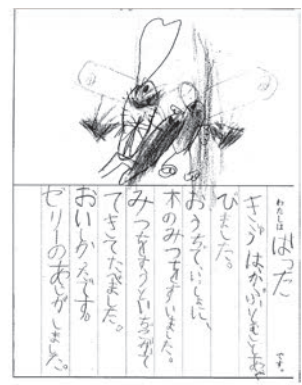 わたしは ばった です。
きょうはかぶとむしとあそ
びました。
おうちでいっしょに、
木のみつをすいました。
みつをすうといなごがで
てきてたべました。
おいしかたです。
ゼリーのあじがしました。